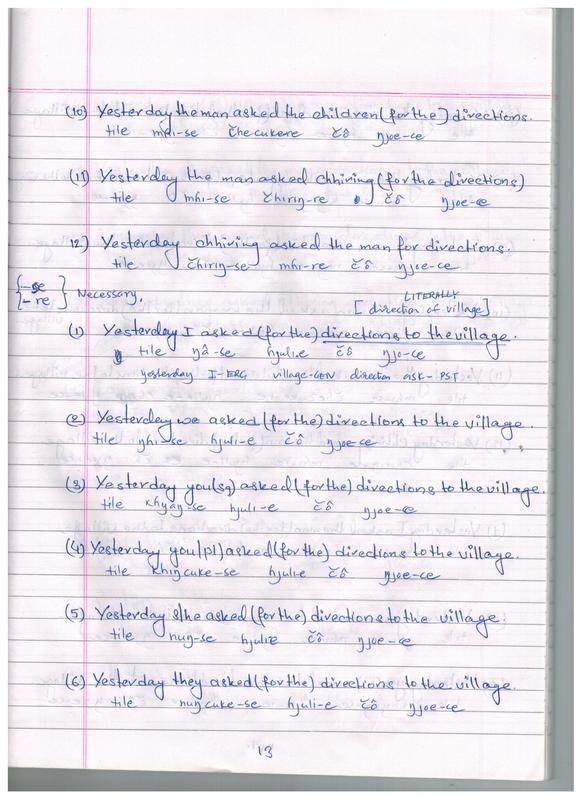 (10) Yesterday the man asked the children (for the) directions.
tile mɦi-se čhecukere čô ŋjoe-ce
(11) Yesterday the man asked chhiring (for the directions)
tile mɦi-se čhiriŋ-re čô ŋjoe-ce
12) Yesterday chhiring asked the man for directions.
tile čhiriŋ-se mɦi-re čô ŋjoe-ce
{-se
-re} Necessary.
LITERALLY
[direction of village]
(1) Yesterday I asked (for the) directions to the village.
tile ŋâ-se ɦjuli.e čô ŋjo-ce
yesterday I-ERG village-GEN direction ask-PST
(2) Yesterday we asked (for the) directions to the village.
tile ŋɦi-se ɦjuli-e čô ŋjoe-ce
(3) Yesterday you (sg) asked (for the) directions to the village.
tile khyaŋ-se ɦjuli-e čô ŋjoe-ce
(4) Yesterday you (pl) asked (for the) directions to the village.
tile khiŋcuke-se ɦjulie čô ŋjoe-ce
(5) Yesterday s/he asked (for the) directions to the village.
tile nuŋ-se ɦjulie čô ŋjoe-ce
(6) Yesterday they asked (for the) directions to the village.
tile nuŋcuke-se ɦjuli-e čô ŋjoe-ce
13